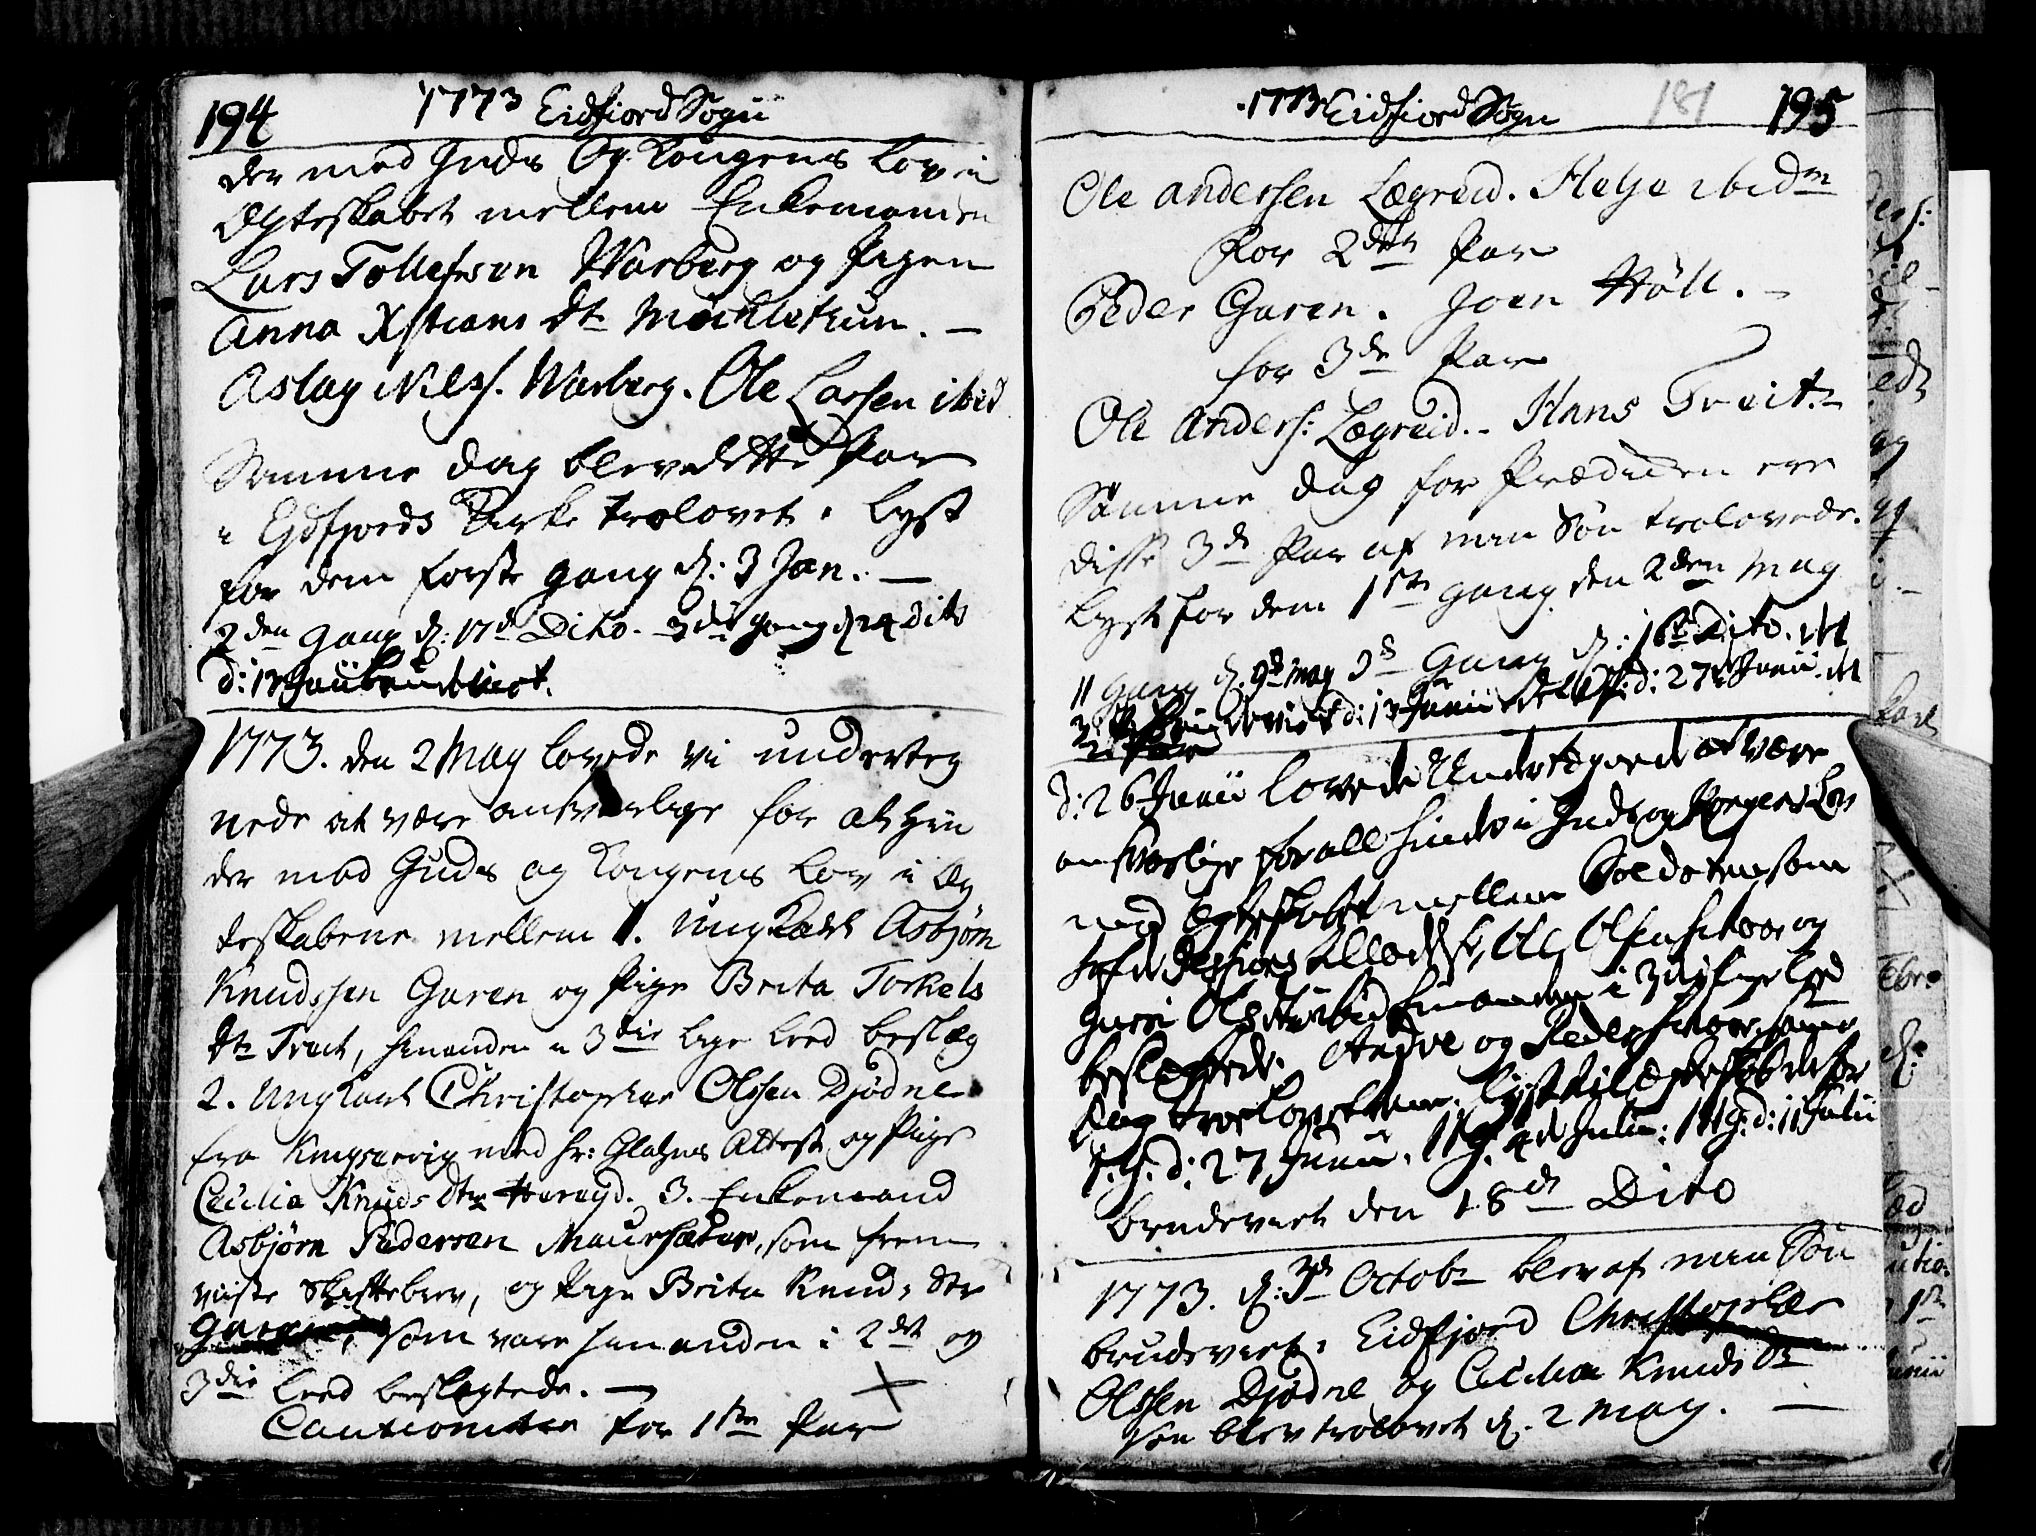 194
1773 Eidfiord Sogn
der med Guds Og Kongens Lov i
Ægteskabet mellem Enkemanden
Lars Tollefsen Warberg og Pigen
Anna Xstians dtr Mochlethun. —
Aslag Nilss. Warberg. Ole Larsen ibid
Samme Dag blev dette Par
i Ejdfjords Kirke trolovet. lyst
for dem første gang d: 3 Jan. —
2den Gang d: 17d Dito. 3die gang d 24 dito
1773. den 2 May lovede vi underteg
nede at være ansvarlige for at hin
der mod Guds og Kongens Lov i Æg
teskabene mellem 1. Ungkarl Asbjørn
Knudssen Garen og Pige Brita Torkels
dtr Treit, hinanden i 3die lige Leed beslæg
2. Ungkarl Christopher Olssen Djødne
fra Kingservig med Hr: Glahns Attest og Pige
Cecilia Knuds dtr 3. Enkemand
Asbjørn Pedersen Maursætter, som frem
viiste Skiftebrev, og Pige Brita Knuds dtr
som vare hinanden i 2det og
3die Leed beslegtede. —
Cautionister for 1ste Par
1773 Eidfiord Sogn
181
195
Ole Anderssen Lægreid. Helje ibidm
For 2det Par
Peder Garen. Joen Høll. —
for 3de Par
Ole Anderss: Lægreid. - Hans Treit. -
Samme Dag for Prædiken ere
disse 3de Par af min Søn trolovede.
lyst for dem 1ste gang den 2den May
11 Gang d. 9de May 3de Gang d: 16de Dito.
d: 13 Junii d: 27de Junii.
d: 26 Junii lovede Undertegnede at være
ansvarlige for all hinder i Guds og Kongens Lov
mod Egteskabet mellem Soldaten som
Ole Olsen og
Guri Ols hinanden i 3die lige Leed
beslegtede. og Peder samme
Dag trolovet
1. G. d: 27 Junii. 11 G. 4de Julii. 111 G: d: 11 Julii
brudeviet den 18de Dito
1773. d: 3de Octobr blev af min Søn
brudeviet i Eidfjord Christopher
Olssen Djødne og Cecilia Knuds dtr
som blev trolovet d. 2 May. —